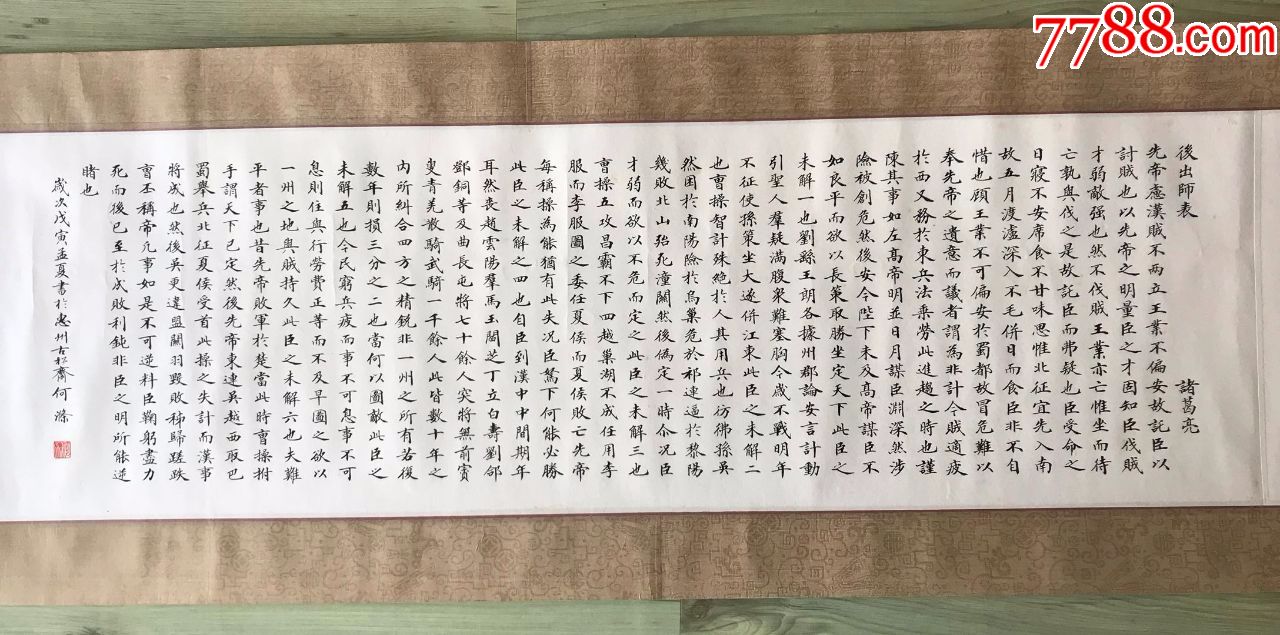 7788.com
後出師表 諸葛亮
先帝慮漢賊不兩立王業不偏安故託臣以
討賊也以先帝之明量臣之才固知臣伐賊
才弱敵强也然不伐賊王業亦亡惟坐而待
亡孰與伐之是故託臣而弗疑也臣受命之
日寢不安席食不甘味思惟北征宜先入南
故五月渡瀘深入不毛併日而食臣非不自
惜也顧王業不可偏安於蜀都故冒危難以
奉先帝之遺意而議者謂為非計今賊適疲
於西又務於東兵法乘勞此進趨之時也謹
陳其事如左高帝明並日月謀臣淵深然涉
險被創危然後安今陛下未及高帝謀臣不
如良平而欲以長策取勝坐定天下此臣之
未解一也劉繇王朗各據州郡論安言計動
引聖人羣疑滿腹衆難塞胸今歲不戰明年
不征使孫策坐大遂併江東此臣之未解二
也曹操智計殊絶於人其用兵也彷彿孫吳
然困於南陽險於烏巢危於祁連逼於黎陽
幾敗北山殆死潼關然後僞定一時尒况臣
才弱而欲以不危而定之此臣之未解三也
曹操五攻昌霸不下四越巢湖不成任用李
服而李服圖之委任夏侯而夏侯敗亡先帝
每稱操為能猶有此失况臣駑下何能必勝
此臣之未解之四也自臣到漢中中間期年
耳然喪趙雲陽羣馬玉閻芝丁立白壽劉郃
鄧銅等及曲長屯將七十餘人突將無前賨
叟青羌散騎武騎一千餘人此皆數十年之
内所糾合四方之精銳非一州之所有若復
數年則損三分之二也當何以圖敵此臣之
未解五也今民窮兵疲而事不可息事不可
息則住與行勞費正等而不及早圖之欲以
一州之地與賊持久此臣之未解六也夫難
平者事也昔先帝敗軍於楚當此時曹操拊
手謂天下已定然後先帝東連吳越西取巴
蜀舉兵北征夏侯受首此操之失計而漢事
將成也然後吳更違盟關羽毀敗秭歸蹉跌
曹丕稱帝凡事如是不可逆料臣鞠躬盡力
死而後已至於成敗利鈍非臣之明所能逆
睹也
歲次戊寅孟夏書於惠州古松齋何滌